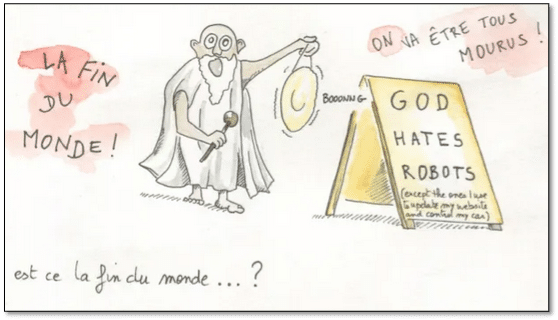 LA FIN
DU
MONDE !
ON VA ÊTRE TOUS
MOURUS !
BOOONNG
GOD
HATES
ROBOTS
(except the ones I use
to update my website
and control my car)
est ce la fin du monde ... ?